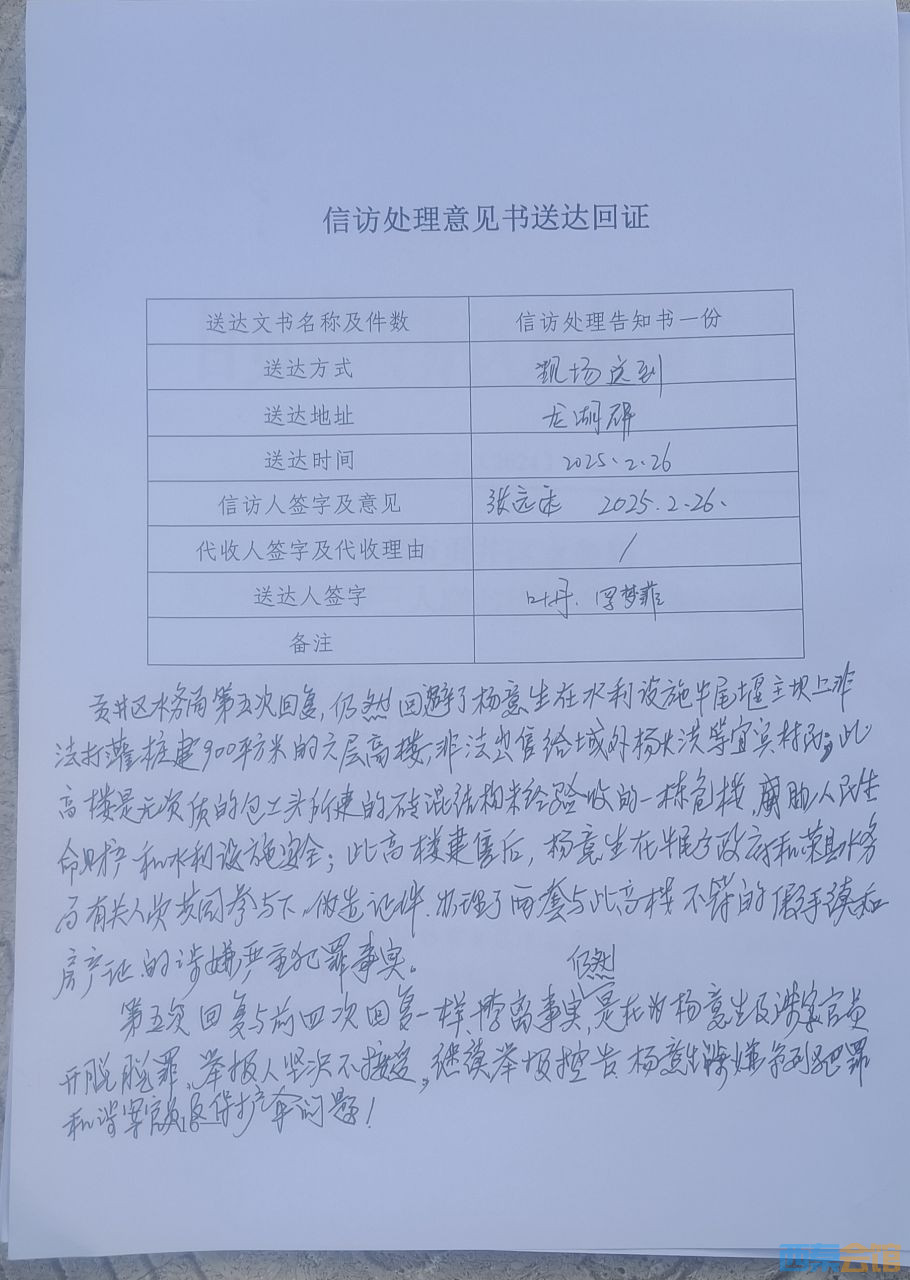 信访处理意见书送达回证
送达文书名称及件数 信访处理告知书一份
送达方式 现场送到
送达地址 龙湖
送达时间 2025.2.26
信访人签字及意见 张远 2025.2.26.
代收人签字及代收理由 /
送达人签字 叶丹. 罗梦菲
备注
贡井区水务局第五次回复,仍然回避了杨意生在水利设施牛尾堰主坝上非
法打灌桩建900平方米的六层高楼,非法出售给域外杨大洪等宜宾村民;此
高楼是无资质的包工头所建的砖混结构未经验收的一栋危楼,威胁人民生
命财产和水利设施安全;此高楼建售后,杨意生在牛尾乡政府和荣县水务
局有关人员共同参与下,伪造证件.办理了两套与此高楼不符的假手续和
房产证的涉嫌严重犯罪事实。
仍然
第五次回复与前四次回复一样,背离事实,是在为杨意生及涉案官员
开脱脱罪,举报人坚决不接受,继续举报控告杨意生涉嫌系列犯罪
和涉案官员及保护伞问题!
16
西秦会馆